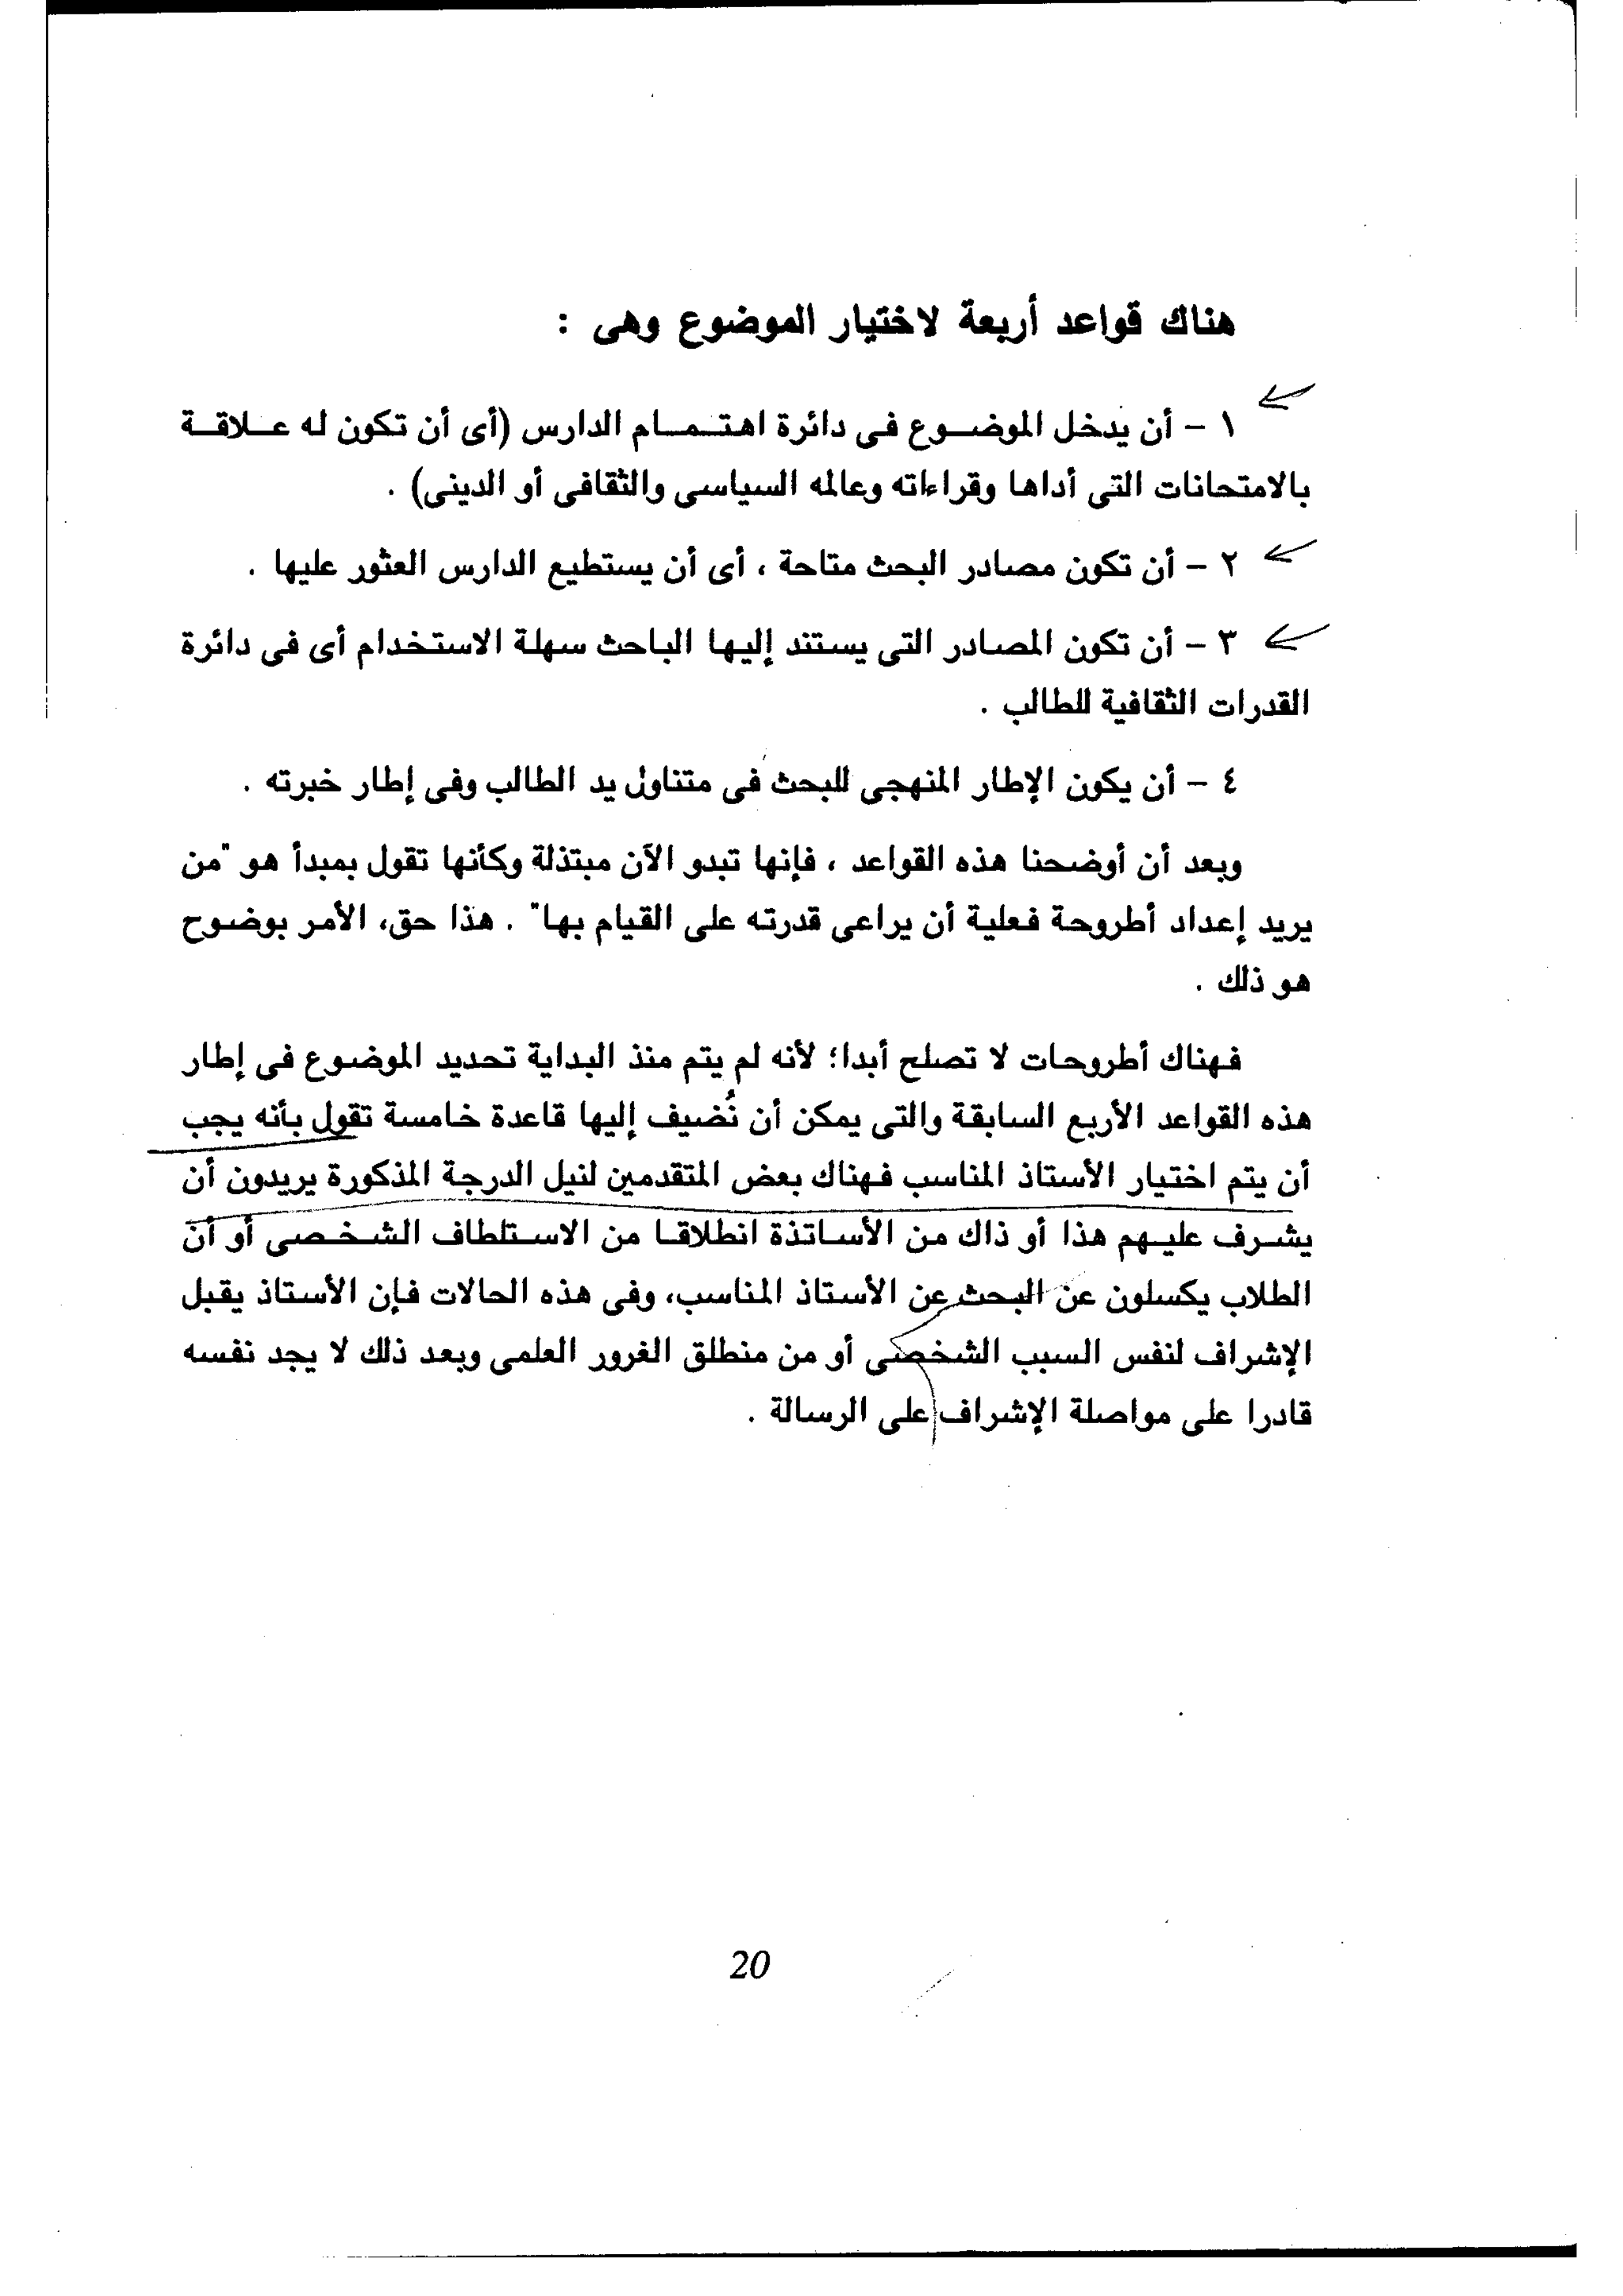 هناك قواعد أربعة لاختيار الموضوع وهى :
١ - أن يدخل الموضـوع فى دائرة اهتـمـام الدارس (أى أن تكون له عـلاقـة
بالامتحانات التى أداها وقراءاته وعالمه السياسى والثقافى أو الدينى) .
٢ - أن تكون مصادر البحث متاحة ، أى أن يستطيع الدارس العثور عليها .
٣ - أن تكون المصادر التى يستند إليها الباحث سهلة الاستخدام أى فى دائرة
القدرات الثقافية للطالب .
٤ - أن يكون الإطار المنهجى للبحث فى متناول يد الطالب وفى إطار خبرته .
وبعد أن أوضحنا هذه القواعد ، فإنها تبدو الآن مبتذلة وكأنها تقول بمبدأ هو "من
يريد إعداد أطروحة فعلية أن يراعى قدرته على القيام بها" . هذا حق، الأمر بوضوح
هو ذلك .
فهناك أطروحات لا تصلح أبدا؛ لأنه لم يتم منذ البداية تحديد الموضوع فى إطار
هذه القواعد الأربع السابقة والتى يمكن أن نُضيف إليها قاعدة خامسة تقول بأنه يجب
أن يتم اختيار الأستاذ المناسب فهناك بعض المتقدمين لنيل الدرجة المذكورة يريدون أن
يشـرف عليـهم هذا أو ذاك من الأسـاتذة انطلاقـا من الاسـتلطاف الشـخـصى أو أن
الطلاب يكسلون عن البحث عن الأستاذ المناسب، وفى هذه الحالات فإن الأستاذ يقبل
الإشراف لنفس السبب الشخصى أو من منطلق الغرور العلمى وبعد ذلك لا يجد نفسه
قادرا على مواصلة الإشراف على الرسالة .
20